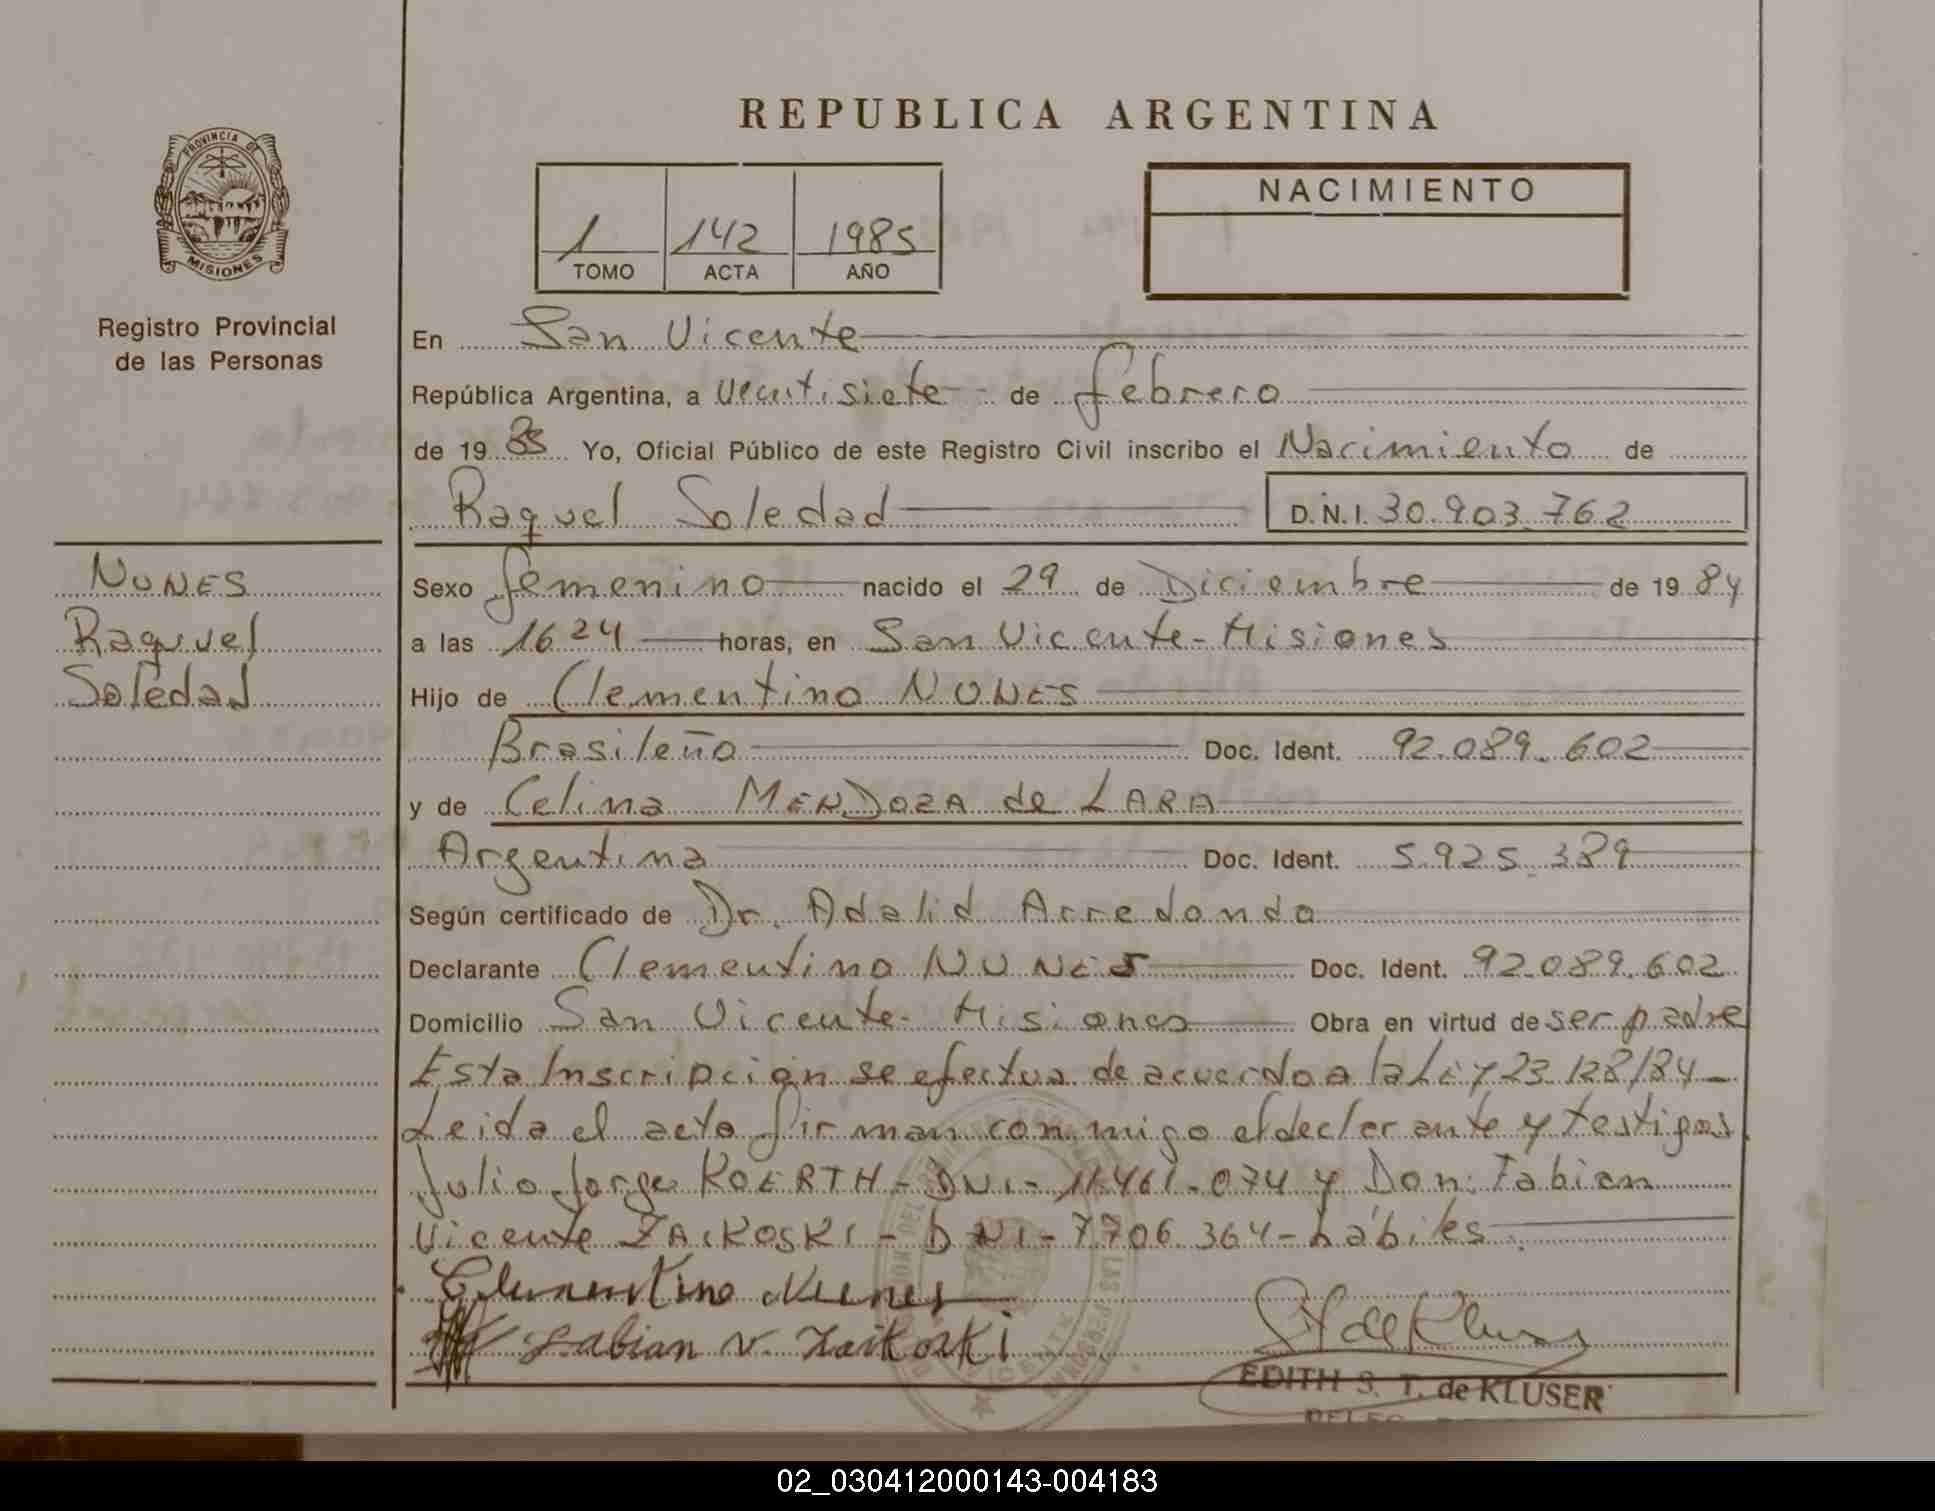 REPUBLICA ARGENTINA
PROVINCIA DE
MISIONES
Registro Provincial
de las Personas
1 142 1985
TOMO ACTA AÑO
NACIMIENTO
En San Vicente
República Argentina, a Veintisiete de febrero
de 19 85 Yo, Oficial Público de este Registro Civil inscribo el Nacimiento de
Raquel Soledad D.N.I. 30.903.762
NUNES
Raquel
Soledad
Sexo femenino nacido el 29 de Diciembre de 19 84
a las 16 24 horas, en San Vicente - Misiones
Hijo de Clementino NUNES
Brasileño Doc. Ident. 92.089.602
y de Celina MENDOZA de LARA
Argentina Doc. Ident. 5.925.389
Según certificado de Dr. Adalid Arredondo
Declarante Clementino NUNES Doc. Ident. 92.089.602
Domicilio San Vicente - Misiones Obra en virtud de ser padre
Esta Inscripción se efectua de acuerdo a la Ley 23.128/84 -
Leida el acta firman conmigo el declarante y testigos
Julio Jorge KOERTH - DNI - 11.461.074 y Don: Fabian
Vicente ZAIKOSKI - DNI - 7.706.364 - hábiles
Clementino Nunes
Fabian V. Zaikoski
EDITH S. T. de KLUSER
02_030412000143-004183